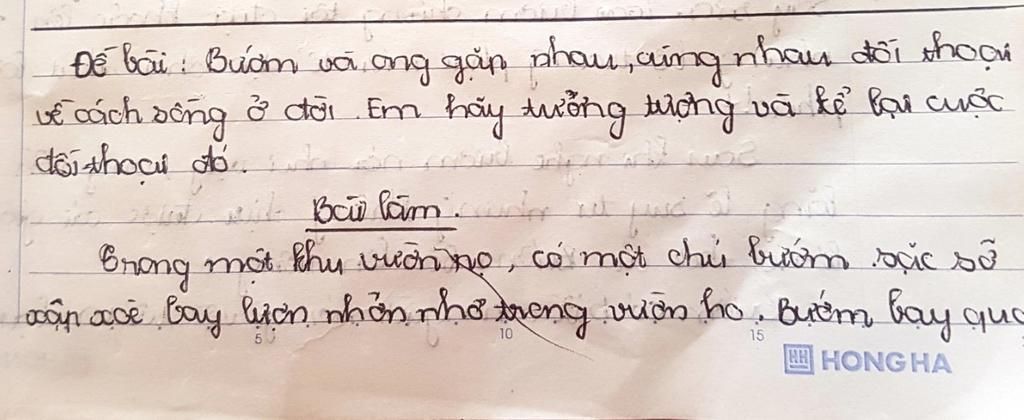 Đề bài: Bướm và ong gặp nhau, cùng nhau đối thoại
về cách sống ở đời. Em hãy tưởng tượng và kể lại cuộc
đối thoại đó.
Bài làm.
Trong một khu vườn nọ, có một chú bướm sặc sỡ
xập xoè bay lượn nhởn nhơ trong vườn hoa. Bướm bay qua
5 10 15
HH HONG HA